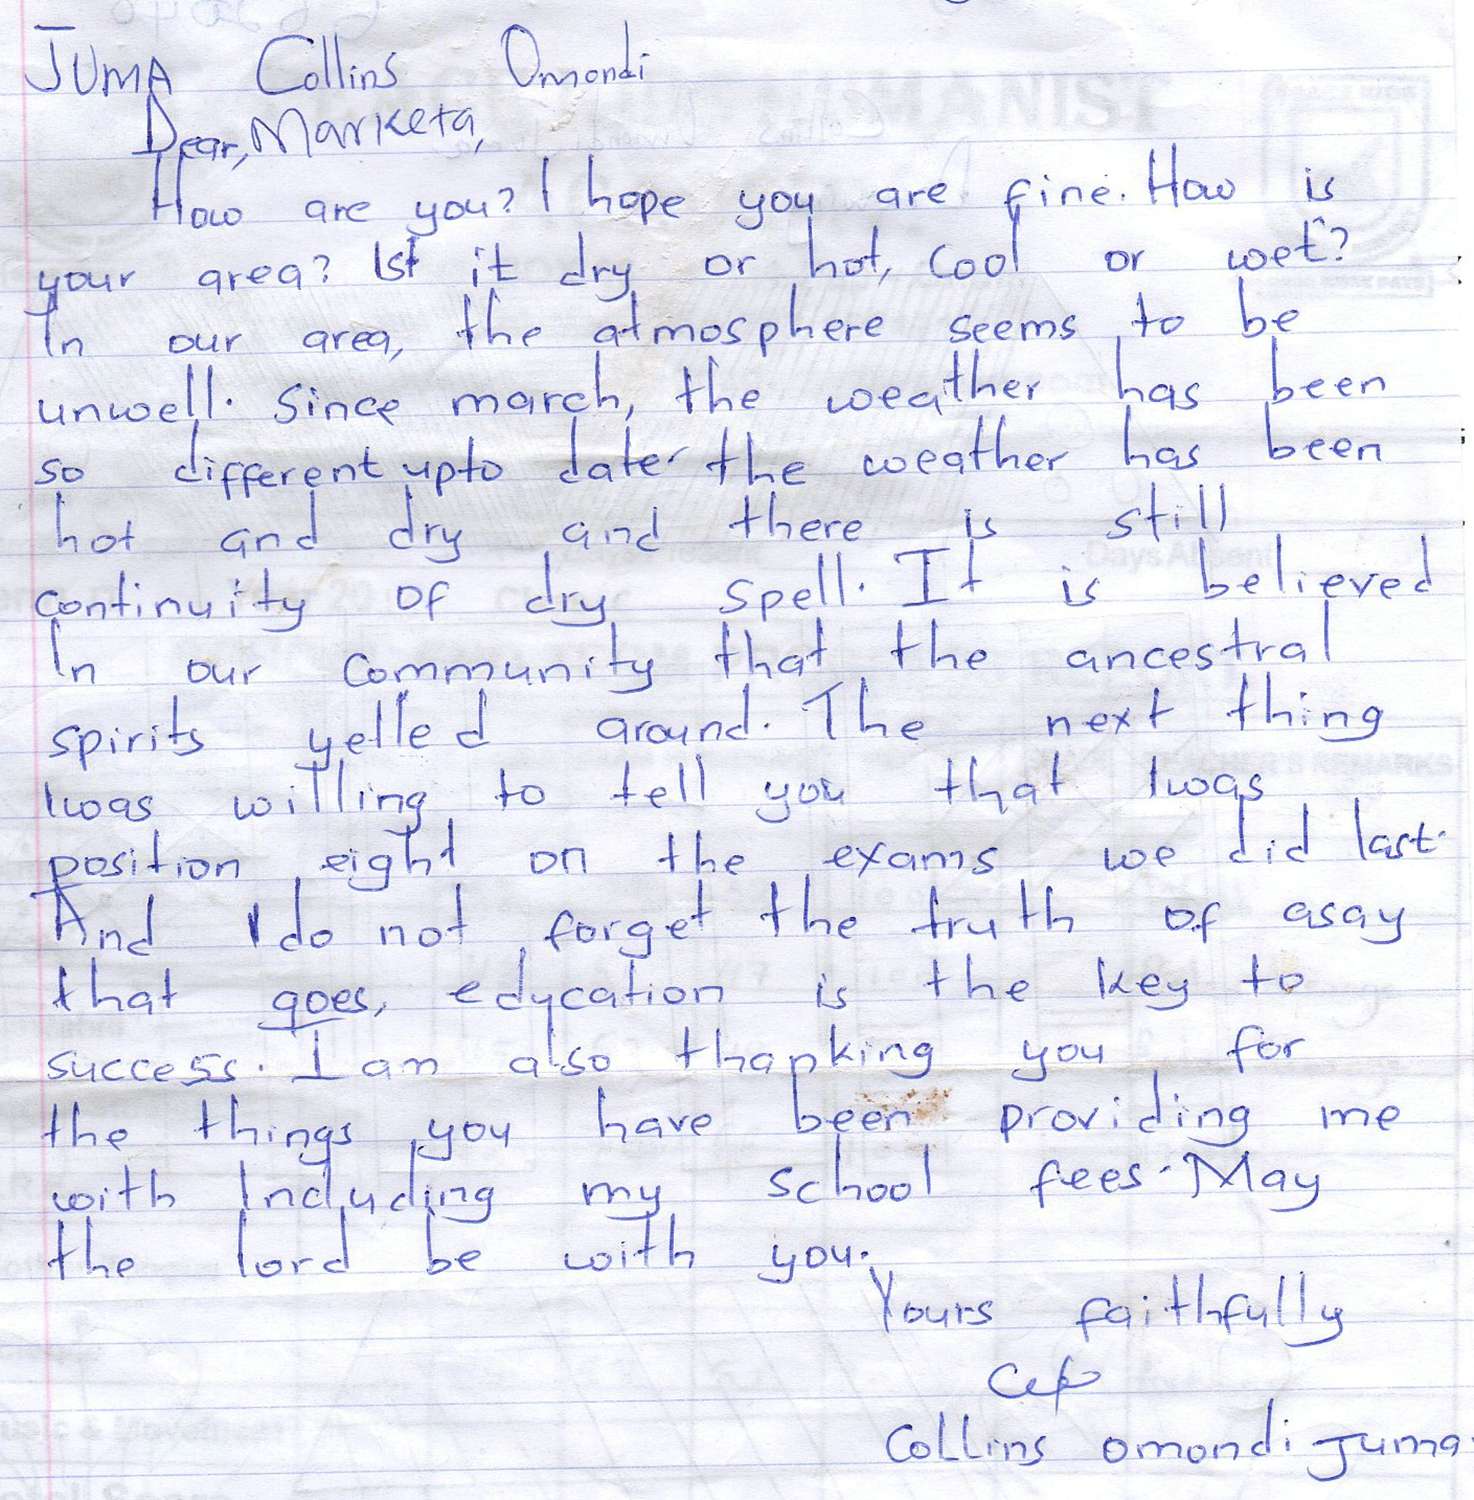 JUMA Collins Omondi
Dear, Marketa,
How are you? I hope you are fine. How is
your area? Ist it dry or hot, cool or wet?
In our area, the atmosphere seems to be
unwell. Since march, the weather has been
so different upto date the weather has been
hot and dry and there is still
continuity of dry spell. It is believed
In our community that the ancestral
spirits yelled around. The next thing
Iwas willing to tell you that Iwas
position eight on the exams we did last.
And I do not forget the truth of asay
that goes, education is the key to
success. I am also thanking you for
the things you have been providing me
with Including my school fees. May
the lord be with you.
Yours faithfully
Collins omondi Juma.
MANIST
Days Absent
TEACHER'S REMARKS